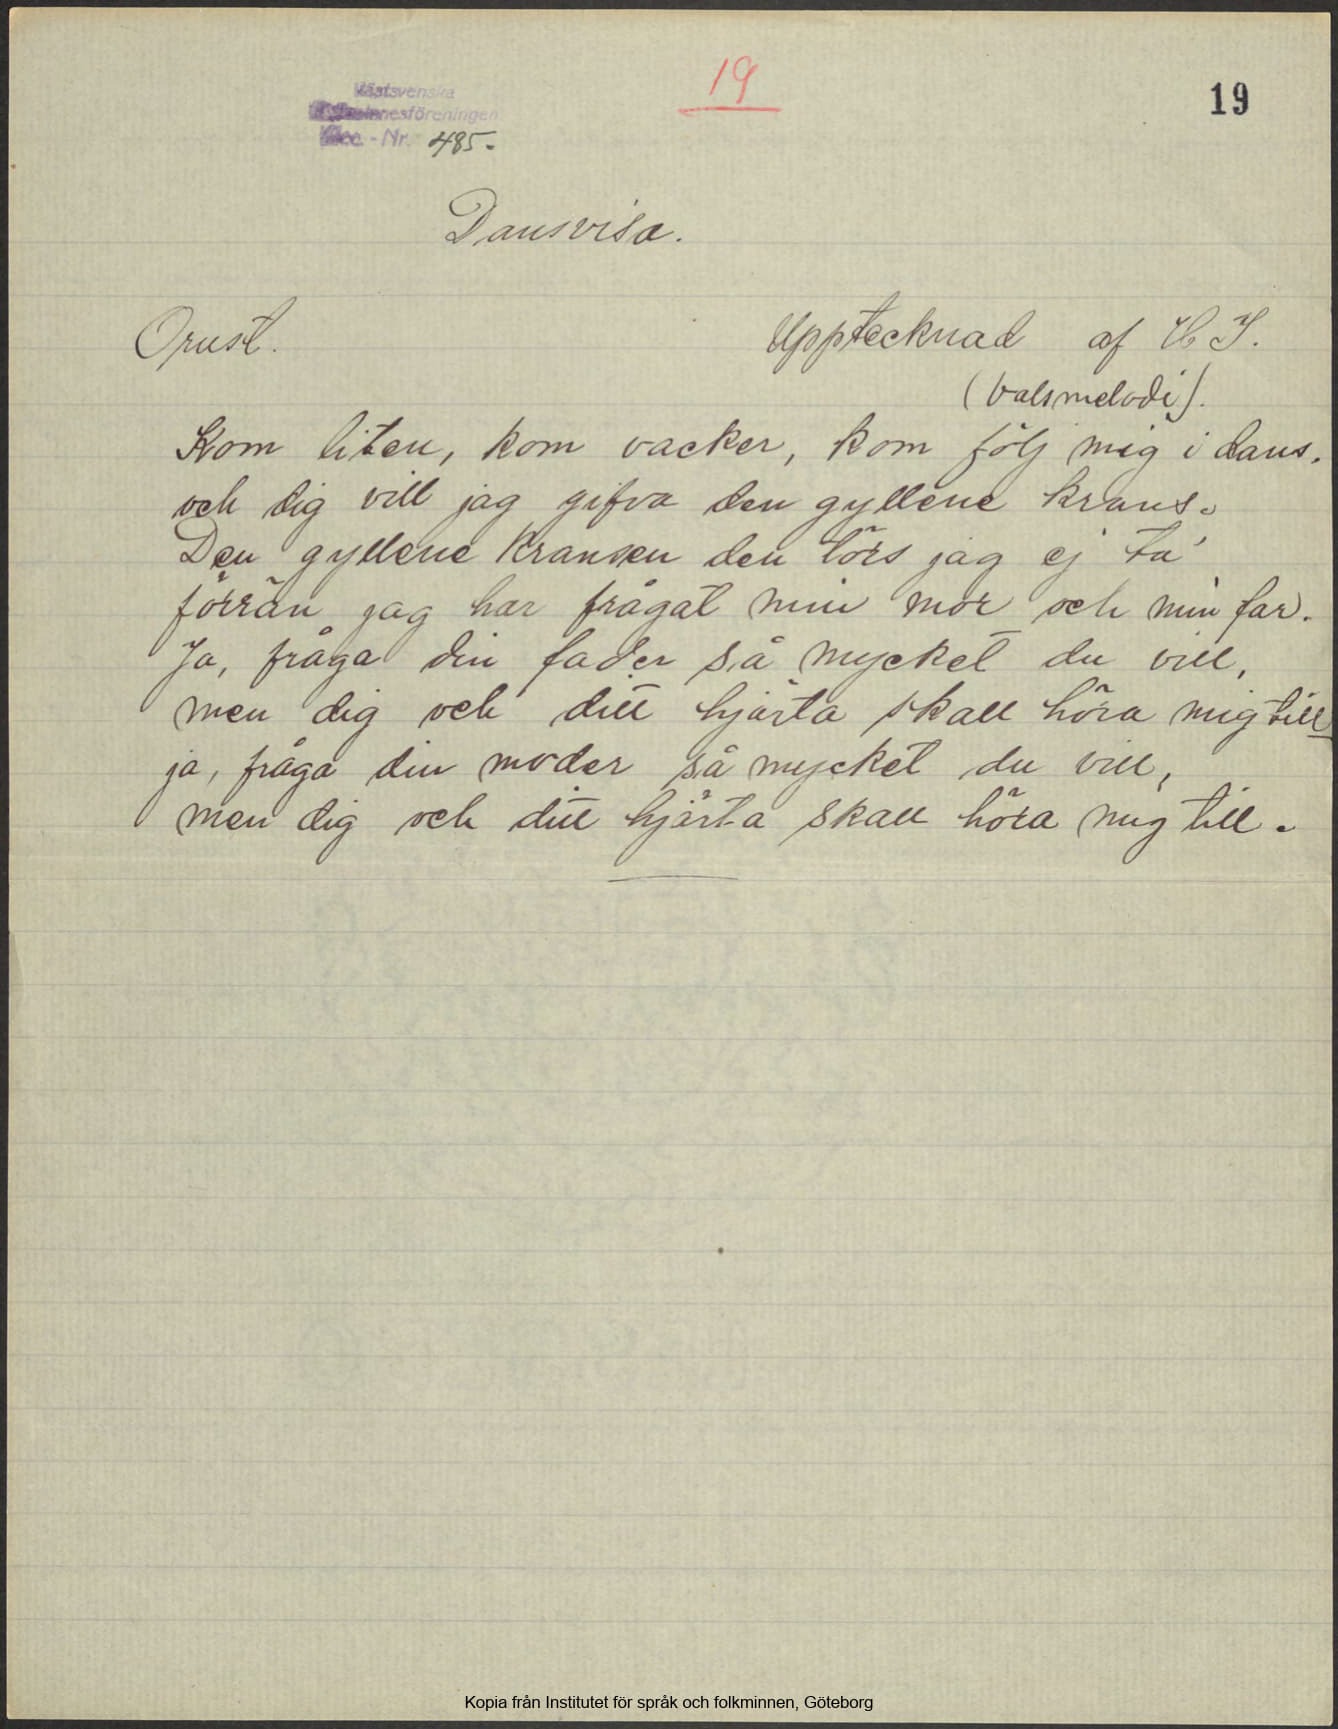 19
19
Västsvenska
Folkminnesföreningen
Acc. - Nr. 485.
Dansvisa.
Orust.
Upptecknad af H J.
(valsmelodi).
Kom liten, kom vacker, kom följ mig i dans,
och dig vill jag gifva den gyllene krans.
Den gyllene kransen den törs jag ej ta'
förrän jag har frågat min mor och min far.
Ja, fråga din fader så mycket du vill,
men dig och ditt hjärta skall höra mig till
ja, fråga din moder så mycket du vill,
men dig och ditt hjärta skall höra mig till.
Kopia från Institutet för språk och folkminnen, Göteborg